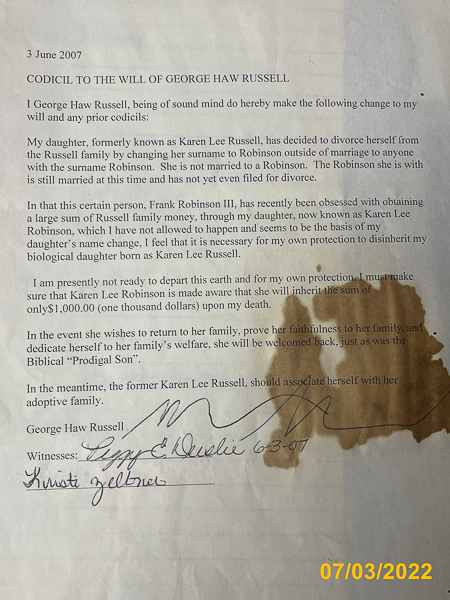 3 June 2007
CODICIL TO THE WILL OF GEORGE HAW RUSSELL
I George Haw Russell, being of sound mind do hereby make the following change to my
will and any prior codicils:
My daughter, formerly known as Karen Lee Russell, has decided to divorce herself from
the Russell family by changing her surname to Robinson outside of marriage to anyone
with the surname Robinson.  She is not married to a Robinson.  The Robinson she is with
is still married at this time and has not yet even filed for divorce.
In that this certain person, Frank Robinson III, has recently been obsessed with obtaining
a large sum of Russell family money, through my daughter, now known as Karen Lee
Robinson, which I have not allowed to happen and seems to be the basis of my
daughter's name change, I feel that it is necessary for my own protection to disinherit my
biological daughter born as Karen Lee Russell.
I am presently not ready to depart this earth and for my own protection, I must make
sure that Karen Lee Robinson is made aware that she will inherit the sum of
only$1,000.00 (one thousand dollars) upon my death.
In the event she wishes to return to her family, prove her faithfulness to her family, and
dedicate herself to her family's welfare, she will be welcomed back, just as was the
Biblical "Prodigal Son".
In the meantime, the former Karen Lee Russell, should associate herself with her
adoptive family.
George Haw Russell
Witnesses: Peggy E 6-3-07
Kristi Zeltner
07/03/2022